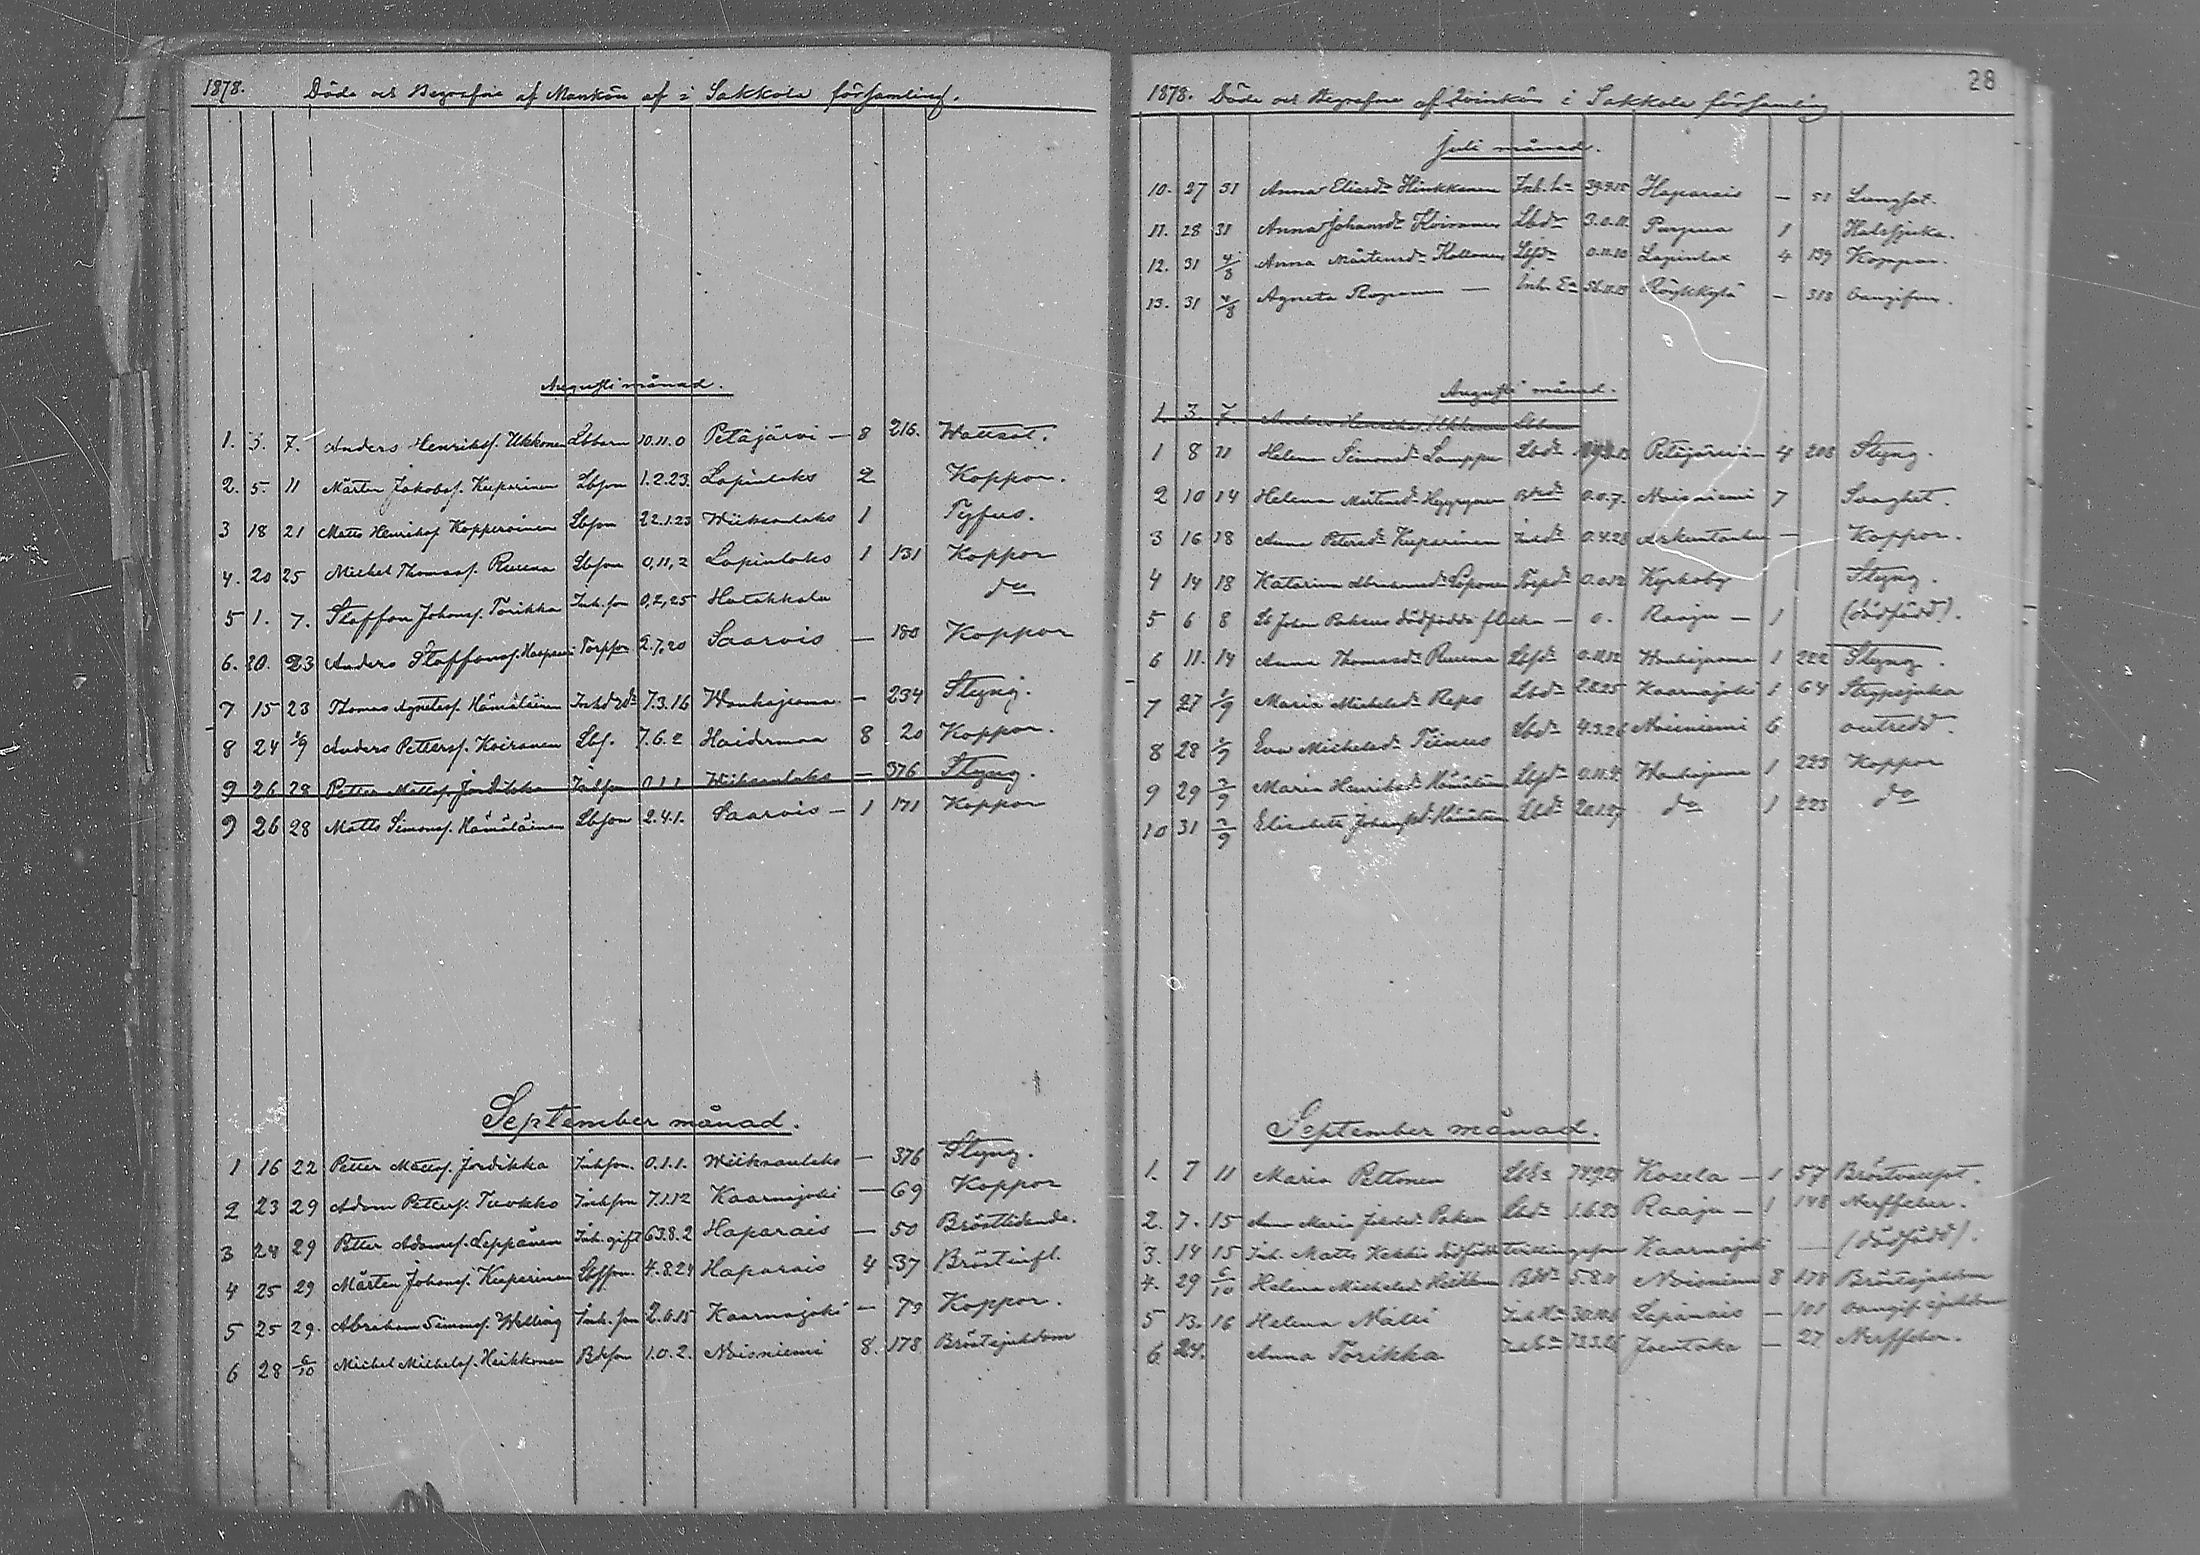 1878. Döde och Begrafne af Mankön af i Sakkola församling.
Augusti månad.
1. 3. 7. Anders Henrikss. Ukkonen Lbbarn 10.11.0 Petäjärvi — 8 216. Wattsot.
2. 5. 11 Mårten Jakobss. Kuparinen Lbson 1.2.23. Lapinlaks 2 Koppor.
3 18 21 Matts Henrikss. Kopperoinen Lbson 22.1.23 Wiiksanlaks 1 Tyfus.
4. 20 25 Michel Thomass. Ruuna Lbson 0,11,2 Lapinlaks 1 131 Koppor
5 1. 7. Staffan Johanss. Torikka Inh.son 0,2,25 Hatakkala do
6. 20. 23 Anders Staffanss. Torpson 2.7.20 Saarois — 180 Koppor
7 15 23 Thomas Agnetas. Hämäläinen 7.3.16 Wanhajama — 234 Slyng.
8 24 1/9 Anders Petterss. Koiranen Lbs. 7.6.2 Haidermaa 8 20 Koppor.
9 26 28 Petter Mattss. Jordikka Inhson 0.1.1. Wiiksanlaks — 376 Slyng.
9 26 28 Matts Simonss. Hämäläinen Lbson 2.4.1. Saarois — 1 171 Koppor
September månad.
1 16 22 Petter Mattss. Jordikka Inhson. 0.1.1. Wiiksanlaks — 376 Slyng.
2 23 29 Adam Petterss. Tuokko Inhson 7.1.12 Kaarnajoki — 69 Koppor
3 24 29 Petter Adamss. Leppänen Inh. gift 63.8.2 Haparais — 50 Bröstlidande.
4 25 29 Mårten Johanss. Kuparinen Lbsson. 4.8.24 Haparais 4 37 Bröstinfl.
5 25 29. Abraham Simonss. Inh. son 2.0.15 Kaarnajoki — 73 Koppor.
6 28 6/10 Michel Michelss. Heikkonen Bdson 1.0.2. Noisniemi 8. 178 Bröstsjukdom
1878. Döde och Begrafne af Qvinkön i Sakkola församling
28
Juli månad.
10. 27 31 Anna Eliasdr Hinkkanen Haparais — 51 Lungsot.
11. 28 31 Anna Johansdr Koiranen Lbdr 3.0.11. Purpua 1 Halssjuka.
12. 31 4/8 Anna Mårtensdr Kollonen Lbdr 0.11.10 Lapinlax 4 139 Koppor.
13. 31 4/8 Agneta — Röykkylä — 318
Augusti månad.
1. 3. 7. Anders Henrikss. Ukkonen Lbbarn
1 8 11 Helena Simonsdr Lamppu Lbdr Petäjärvi — 4 208 Slyng.
2 10 14 Helena Mårtensdr Bdr 0.0.7. Noisniemi 7 Svaghet.
3 16 18 Anna Petersdr Kuparinen Inhdr 0.4.28 — Koppor.
4 14 18 Katarina Torpdr 0.0.12 Kyrkoby Slyng.
5 6 8 Lb Johan dödfödda flicka — 0. Raaju — 1 (dödfödd).
6 11. 14 Anna Thomasdr Ruuna Lbdr 0.11.12 Wanhajama 1 222 Slyng.
7 27 1/9 Maria Michelsdr Reps Lbdr 2.8.25 Kaarnajoki 1 64 Strypsjuka
8 28 1/9 Eva Michelsdr Lbdr Noisniemi 6 outredd.
9 29 2/9 Maria Henriksdr Hämäläinen Lbdr Wanhajama 1 223 Koppor
10 31 2/9 Elisabeth Hämäläinen Lbdr do 1 223 do
September månad.
1. 7 11 Maria Pettonen Kosela — 1 57
2. 7. 15 Anna Maria Lbdr 1.6.23 Raaju — 1 148 Nerffeber.
3. 14 15 Inh. Matts dödfödda tvillingson Kaarnajoki — (dödfödd).
4. 29 6/10 Helena Michelsdr 5.8.11 Noisniemi 8 178 Bröstsjukdom
5 13. 16 Helena Lapinais — 101 sjukdom
6. 24. Anna Torikka — 27 Nerffeber.